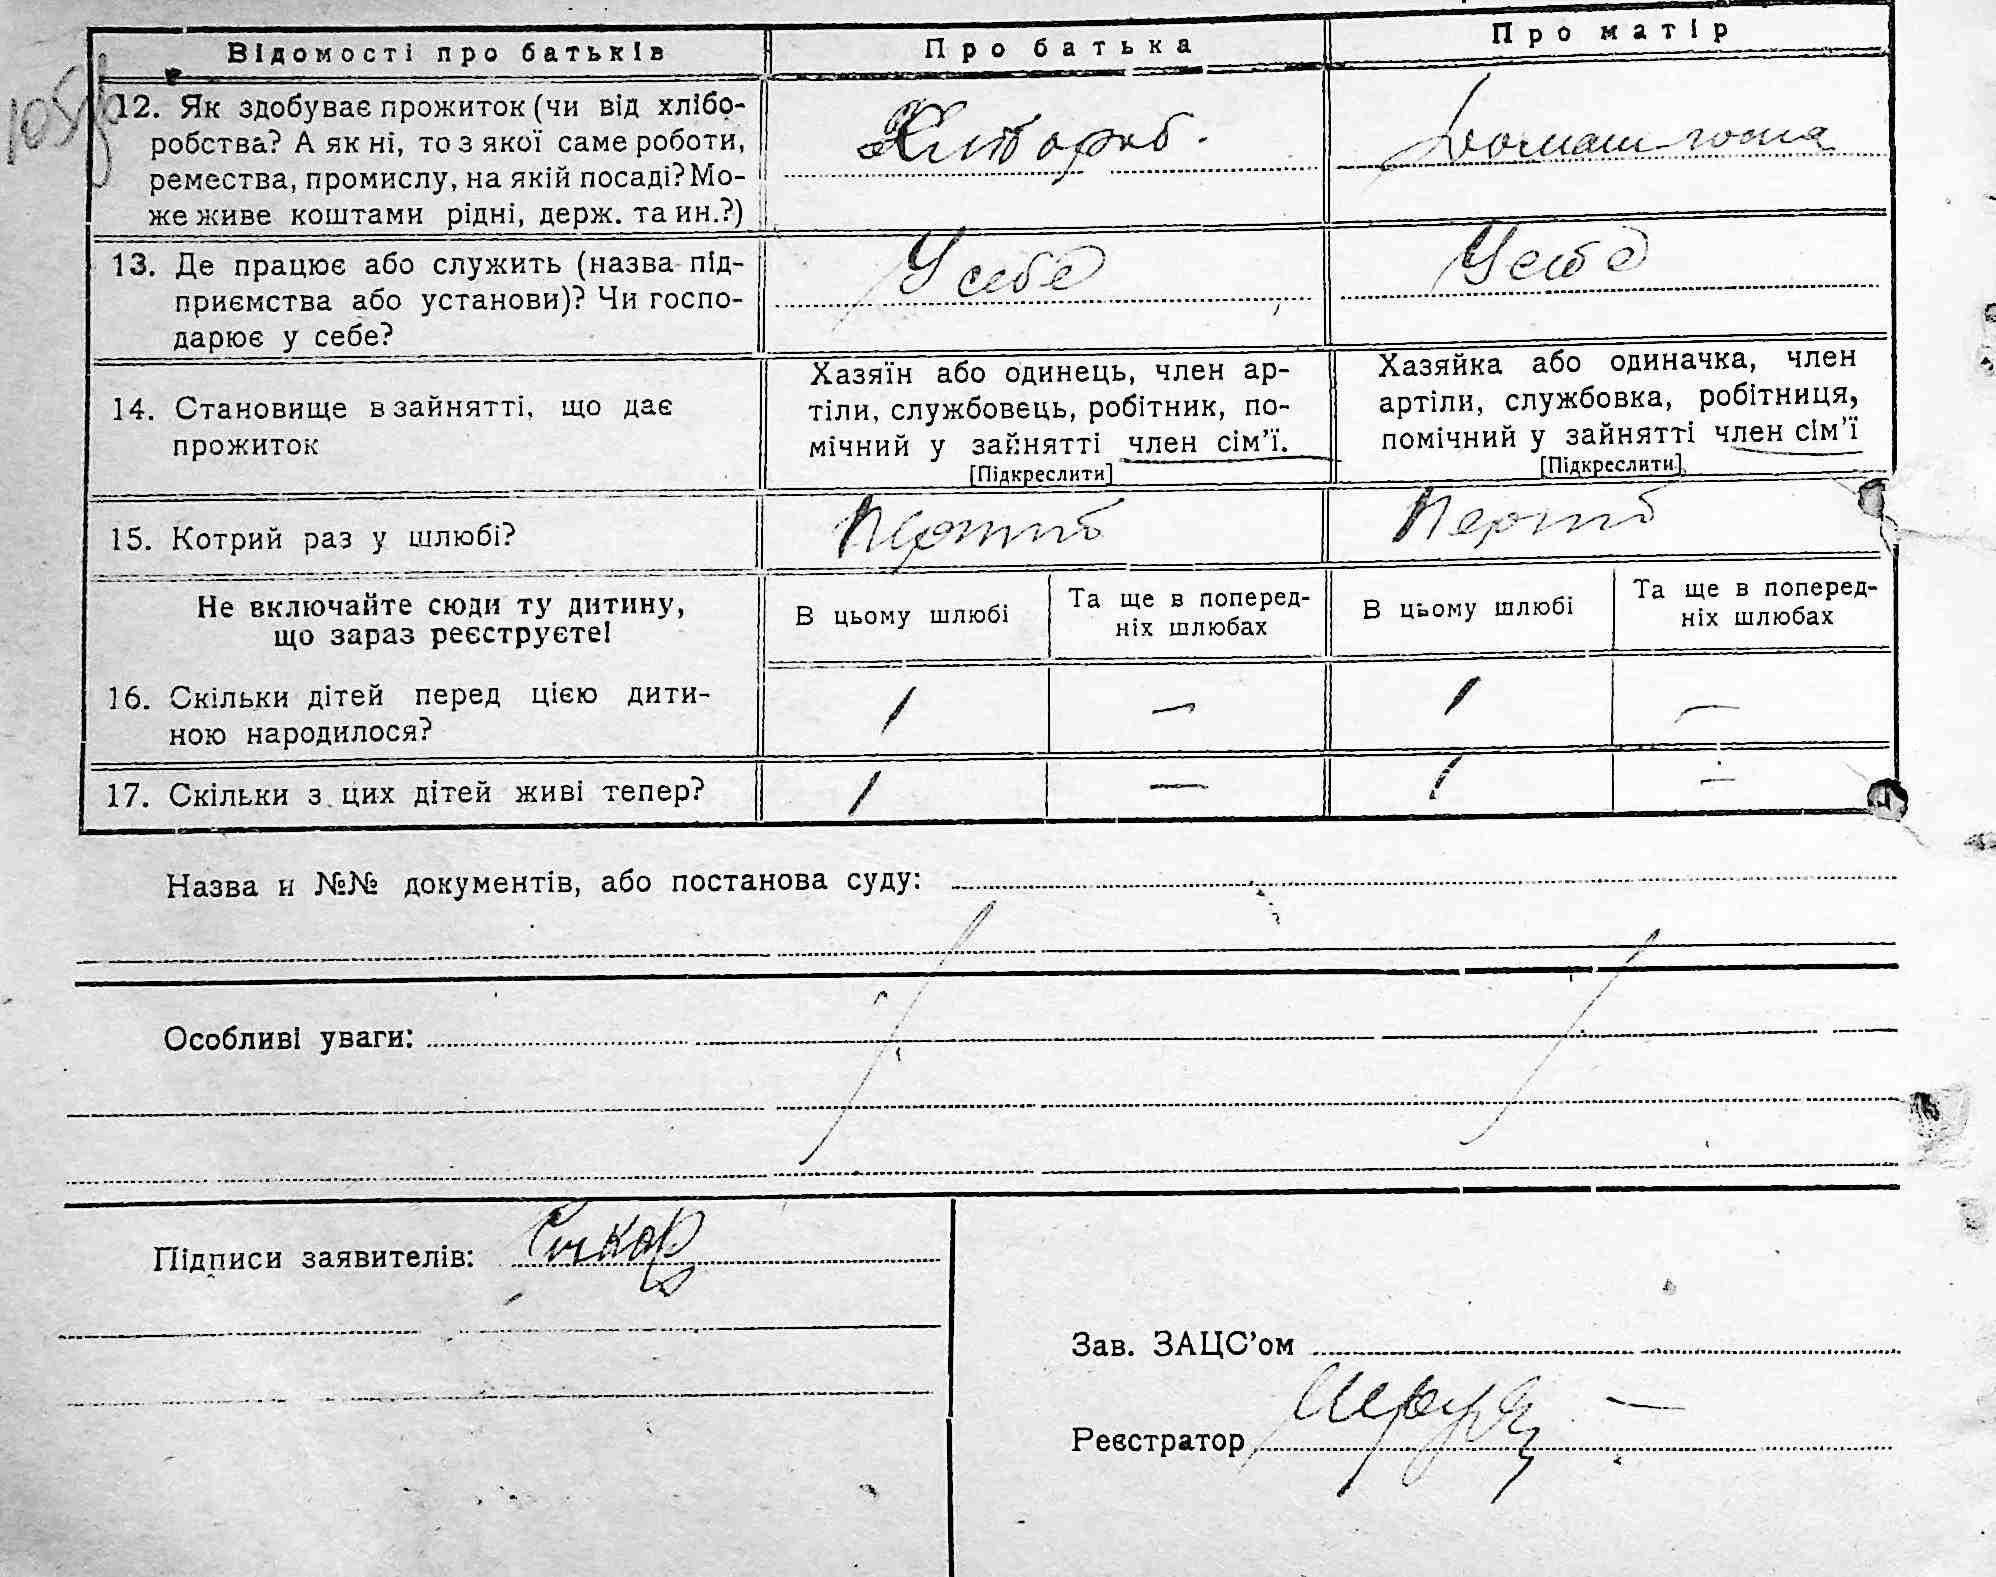 Відомості про батьків
Про батька
Про матір
12. Як здобуває прожиток (чи від хлібо-
робства? А як ні, то з якої саме роботи,
ремества, промислу, на якій посаді? Мо-
же живе коштами рідні, держ. та ин.?)
13. Де працює або служить (назва під-
приємства або установи)? Чи госпо-
дарює у себе?
У себе
У себе
14. Становище в зайнятті, що дає
прожиток
Хазяїн або одинець, член ар-
тіли, службовець, робітник, по-
мічний у зайнятті член сім'ї.
[Підкреслити]
Хазяйка або одиначка, член
артіли, службовка, робітниця,
помічний у зайнятті член сім'ї
[Підкреслити]
15. Котрий раз у шлюбі?
Не включайте сюди ту дитину,
що зараз реєструєте!
В цьому шлюбі
Та ще в поперед-
ніх шлюбах
В цьому шлюбі
Та ще в поперед-
ніх шлюбах
16. Скільки дітей перед цією дити-
ною народилося?
1 — 1 —
17. Скільки з цих дітей живі тепер?
1 — 1 —
Назва и №№ документів, або постанова суду:
Особливі уваги:
Підписи заявителів:
Зав. ЗАЦС'ом
Реєстратор